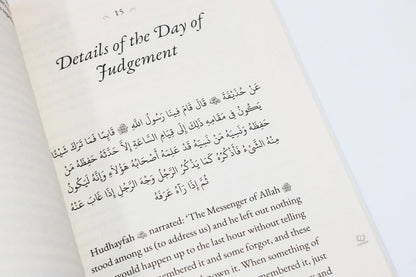 15
Details of the Day of
Judgement
عَنْ حُذَيْفَةَ ﷺ قَالَ قَامَ فِينَا رَسُولُ اللَّهِ ﷺ قَائِمًا فَمَا تَرَكَ شَيْئًا
يَكُونُ فِي مَقَامِهِ ذَلِكَ إِلَى قِيَامِ السَّاعَةِ إِلاَّ حَدَّثَهُ حَفِظَهُ مَنْ
حَفِظَهُ وَنَسِيَهُ مَنْ نَسِيَهُ قَدْ عَلِمَهُ أَصْحَابُهُ هَؤُلاَءِ وَإِنَّهُ لَيَكُونُ
مِنْهُ الشَّىْءُ فَأَذْكُرُهُ كَمَا يَذْكُرُ الرَّجُلُ وَجْهَ الرَّجُلِ إِذَا غَابَ عَنْهُ
ثُمَّ إِذَا رَآهُ عَرَفَهُ
Hudhayfah narrated: "The Messenger of Allah ﷺ
stood among us (to address us) and he left out nothing
would happen up to the last hour without telling
membered it and some forgot, and these
own it. When something of